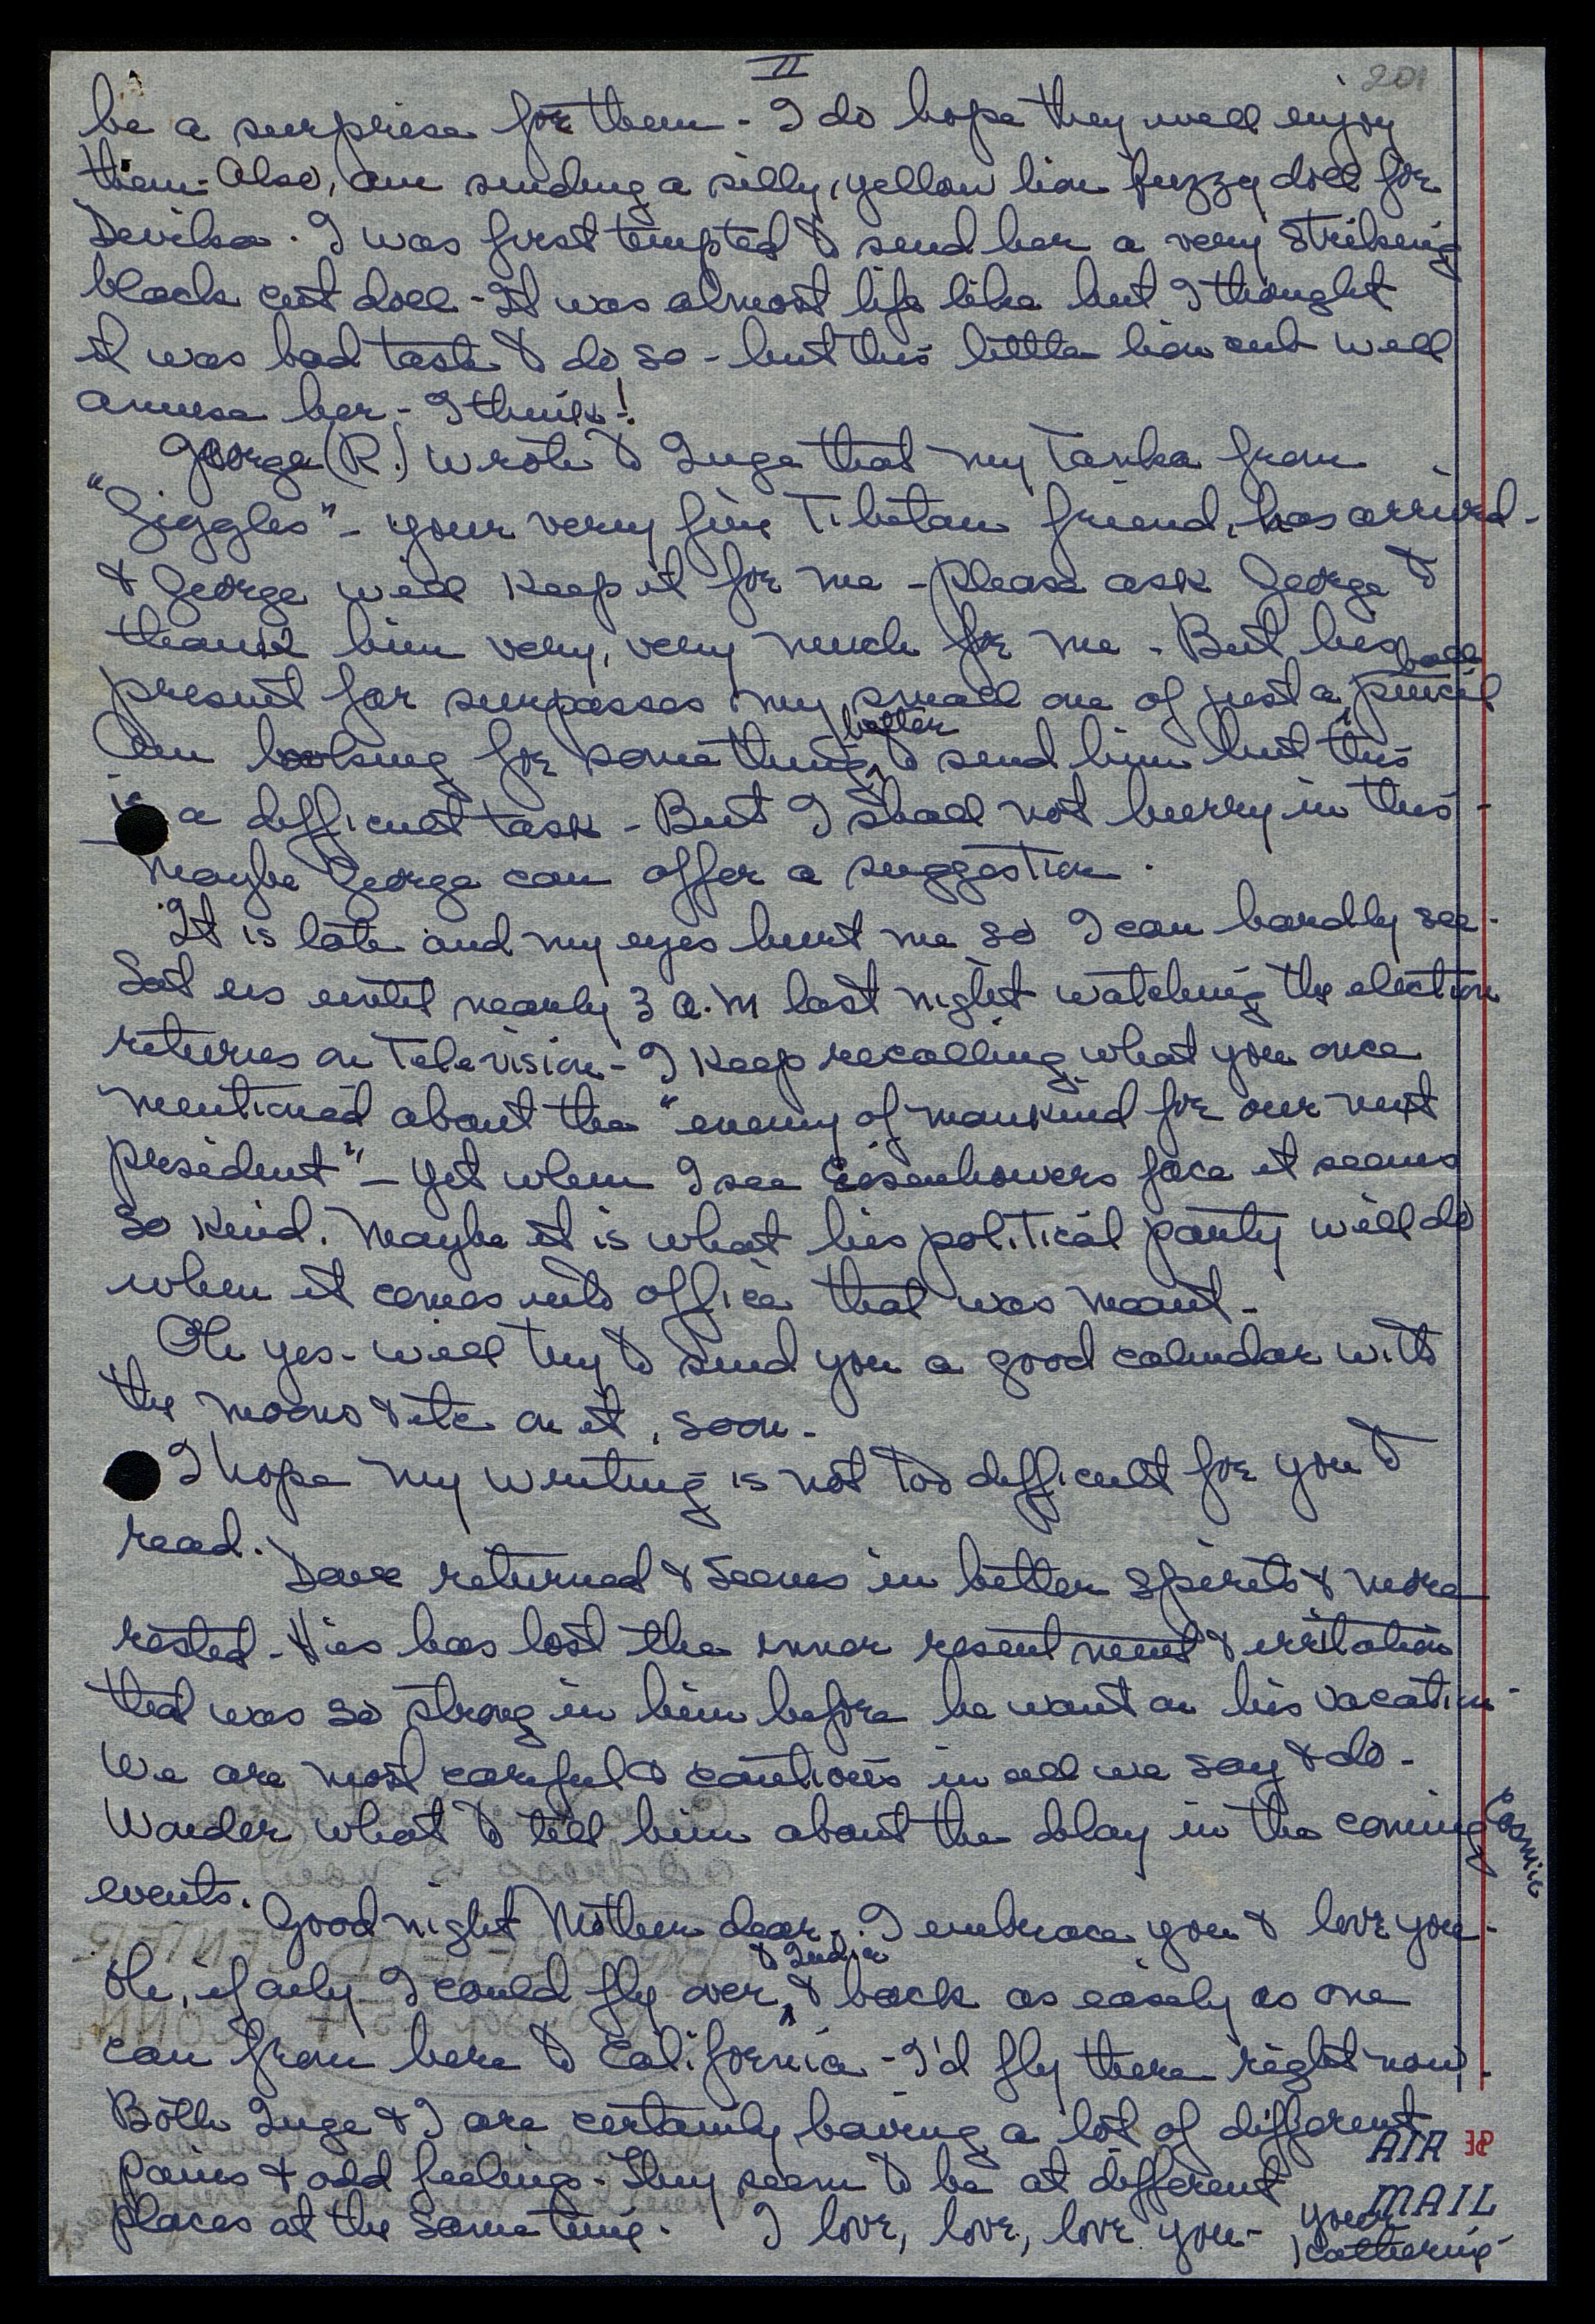 II
201
be a surprise for them - I do hope they will enjoy
them - Also, am sending a silly, yellow lion fuzzy doll for
Devika. I was first tempted to send her a very striking
black cat doll - It was almost life like but I thought
it was bad taste to do so - but this little lion cub will
amuse her - I think!
George (R.) wrote to Inge that my Tanka from
"Giggles" - your very fine Tibetan friend, has arrived -
& George will keep it for me - Please ask George to
thank him very, very much for me - But his
present far surpasses my small one of just a ball pencil
Am looking for something better to send him but this
is a difficult task - But I shall not hurry in this -
Maybe George can offer a suggestion.
It is late and my eyes hurt me so I can hardly see.
Sat up until nearly 3 a.m last night watching the election
returns on Television - I keep recalling what you once
mentioned about the "enemy of mankind for our next
president" - yet when I see Eisenhowers face it seems
so kind. Maybe it is what his political party will do
when it comes into office that was meant -
Oh yes - will try to send you a good calendar with
the moons & etc on it, soon -
I hope my writing is not too difficult for you to
read.
Dave returned & seems in better spirits & more
rested - His has lost the inner resentment & irritation
that was so strong in him before he went on his vacation -
We are most careful & cautious in all we say & do -
Wonder what to tell him about the delay in the coming cosmic
events.
Good night Mother dear, I embrace you & love you -
Oh, if only I could fly over to India & back as easily as one
can from here to California - I'd fly there right now.
Both Inge & I are certainly having a lot of different
pains & odd feelings - They seem to be at different
places at the same time. I love, love, love you - your
Katherine
AIR
MAIL